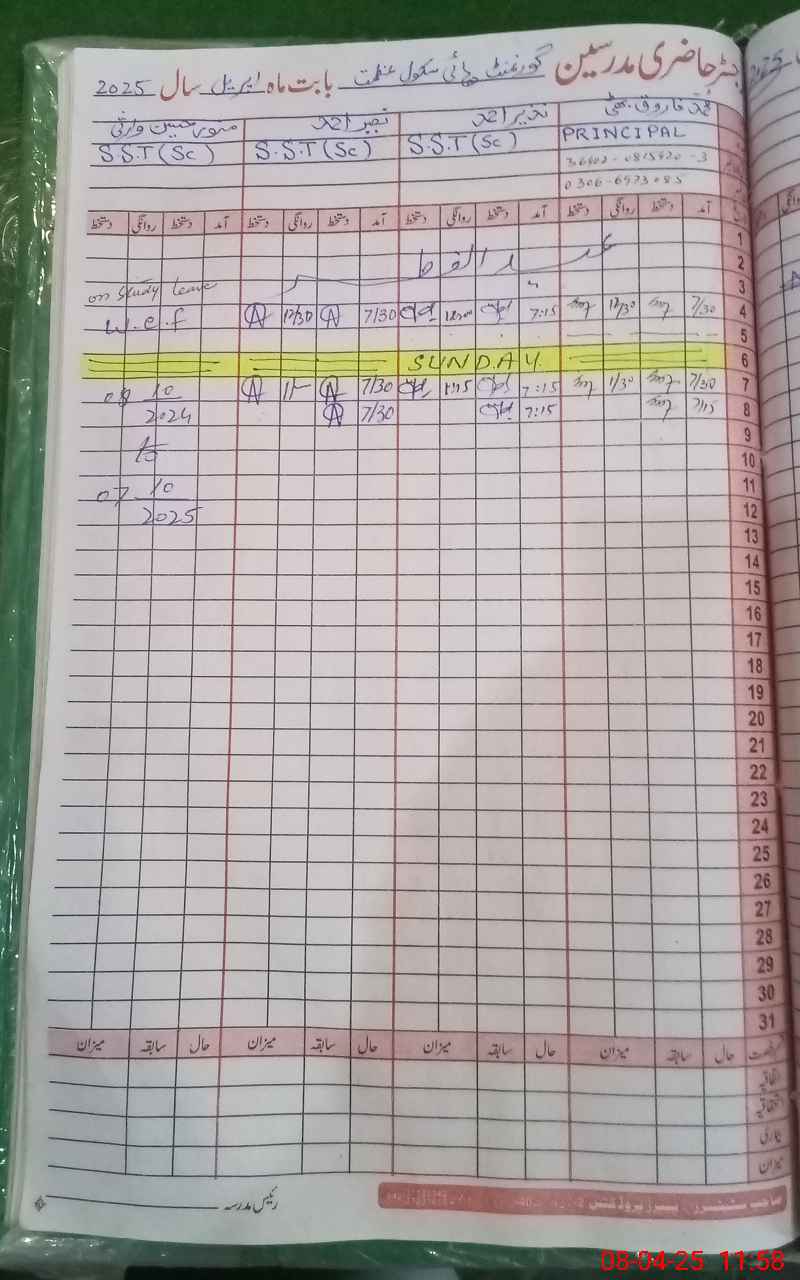 رجسٹر حاضری مدرسین گورنمنٹ ہائی سکول عظمت بابت ماہ اپریل سال 2025
محمد فاروق بھٹی نذیر احمد نصیر احمد
PRINCIPAL S.S.T (Sc) S.S.T (Sc) S.S.T (Sc)
0306-6973085
آمد دستخط روانگی دستخط آمد دستخط روانگی دستخط آمد دستخط روانگی دستخط آمد دستخط روانگی دستخط
1
2 عید الفطر
3 on study leave
4 7/30 12/30 7:15 12:00 7/30 12/30 w.e.f
5
6 SUNDAY
7 7/30 1/30 7:15 1:15 7/30 08 10
8 7/15 7:15 7/30 2024
9 to
10
11 07 10
12 2025
13
14
15
16
17
18
19
20
21
22
23
24
25
26
27
28
29
30
31
رخصت حال سابقہ میزان حال سابقہ میزان حال سابقہ میزان حال سابقہ میزان
اتفاقیہ
بیماری
میزان
رئیس مدرسہ
08-04-25 11:58